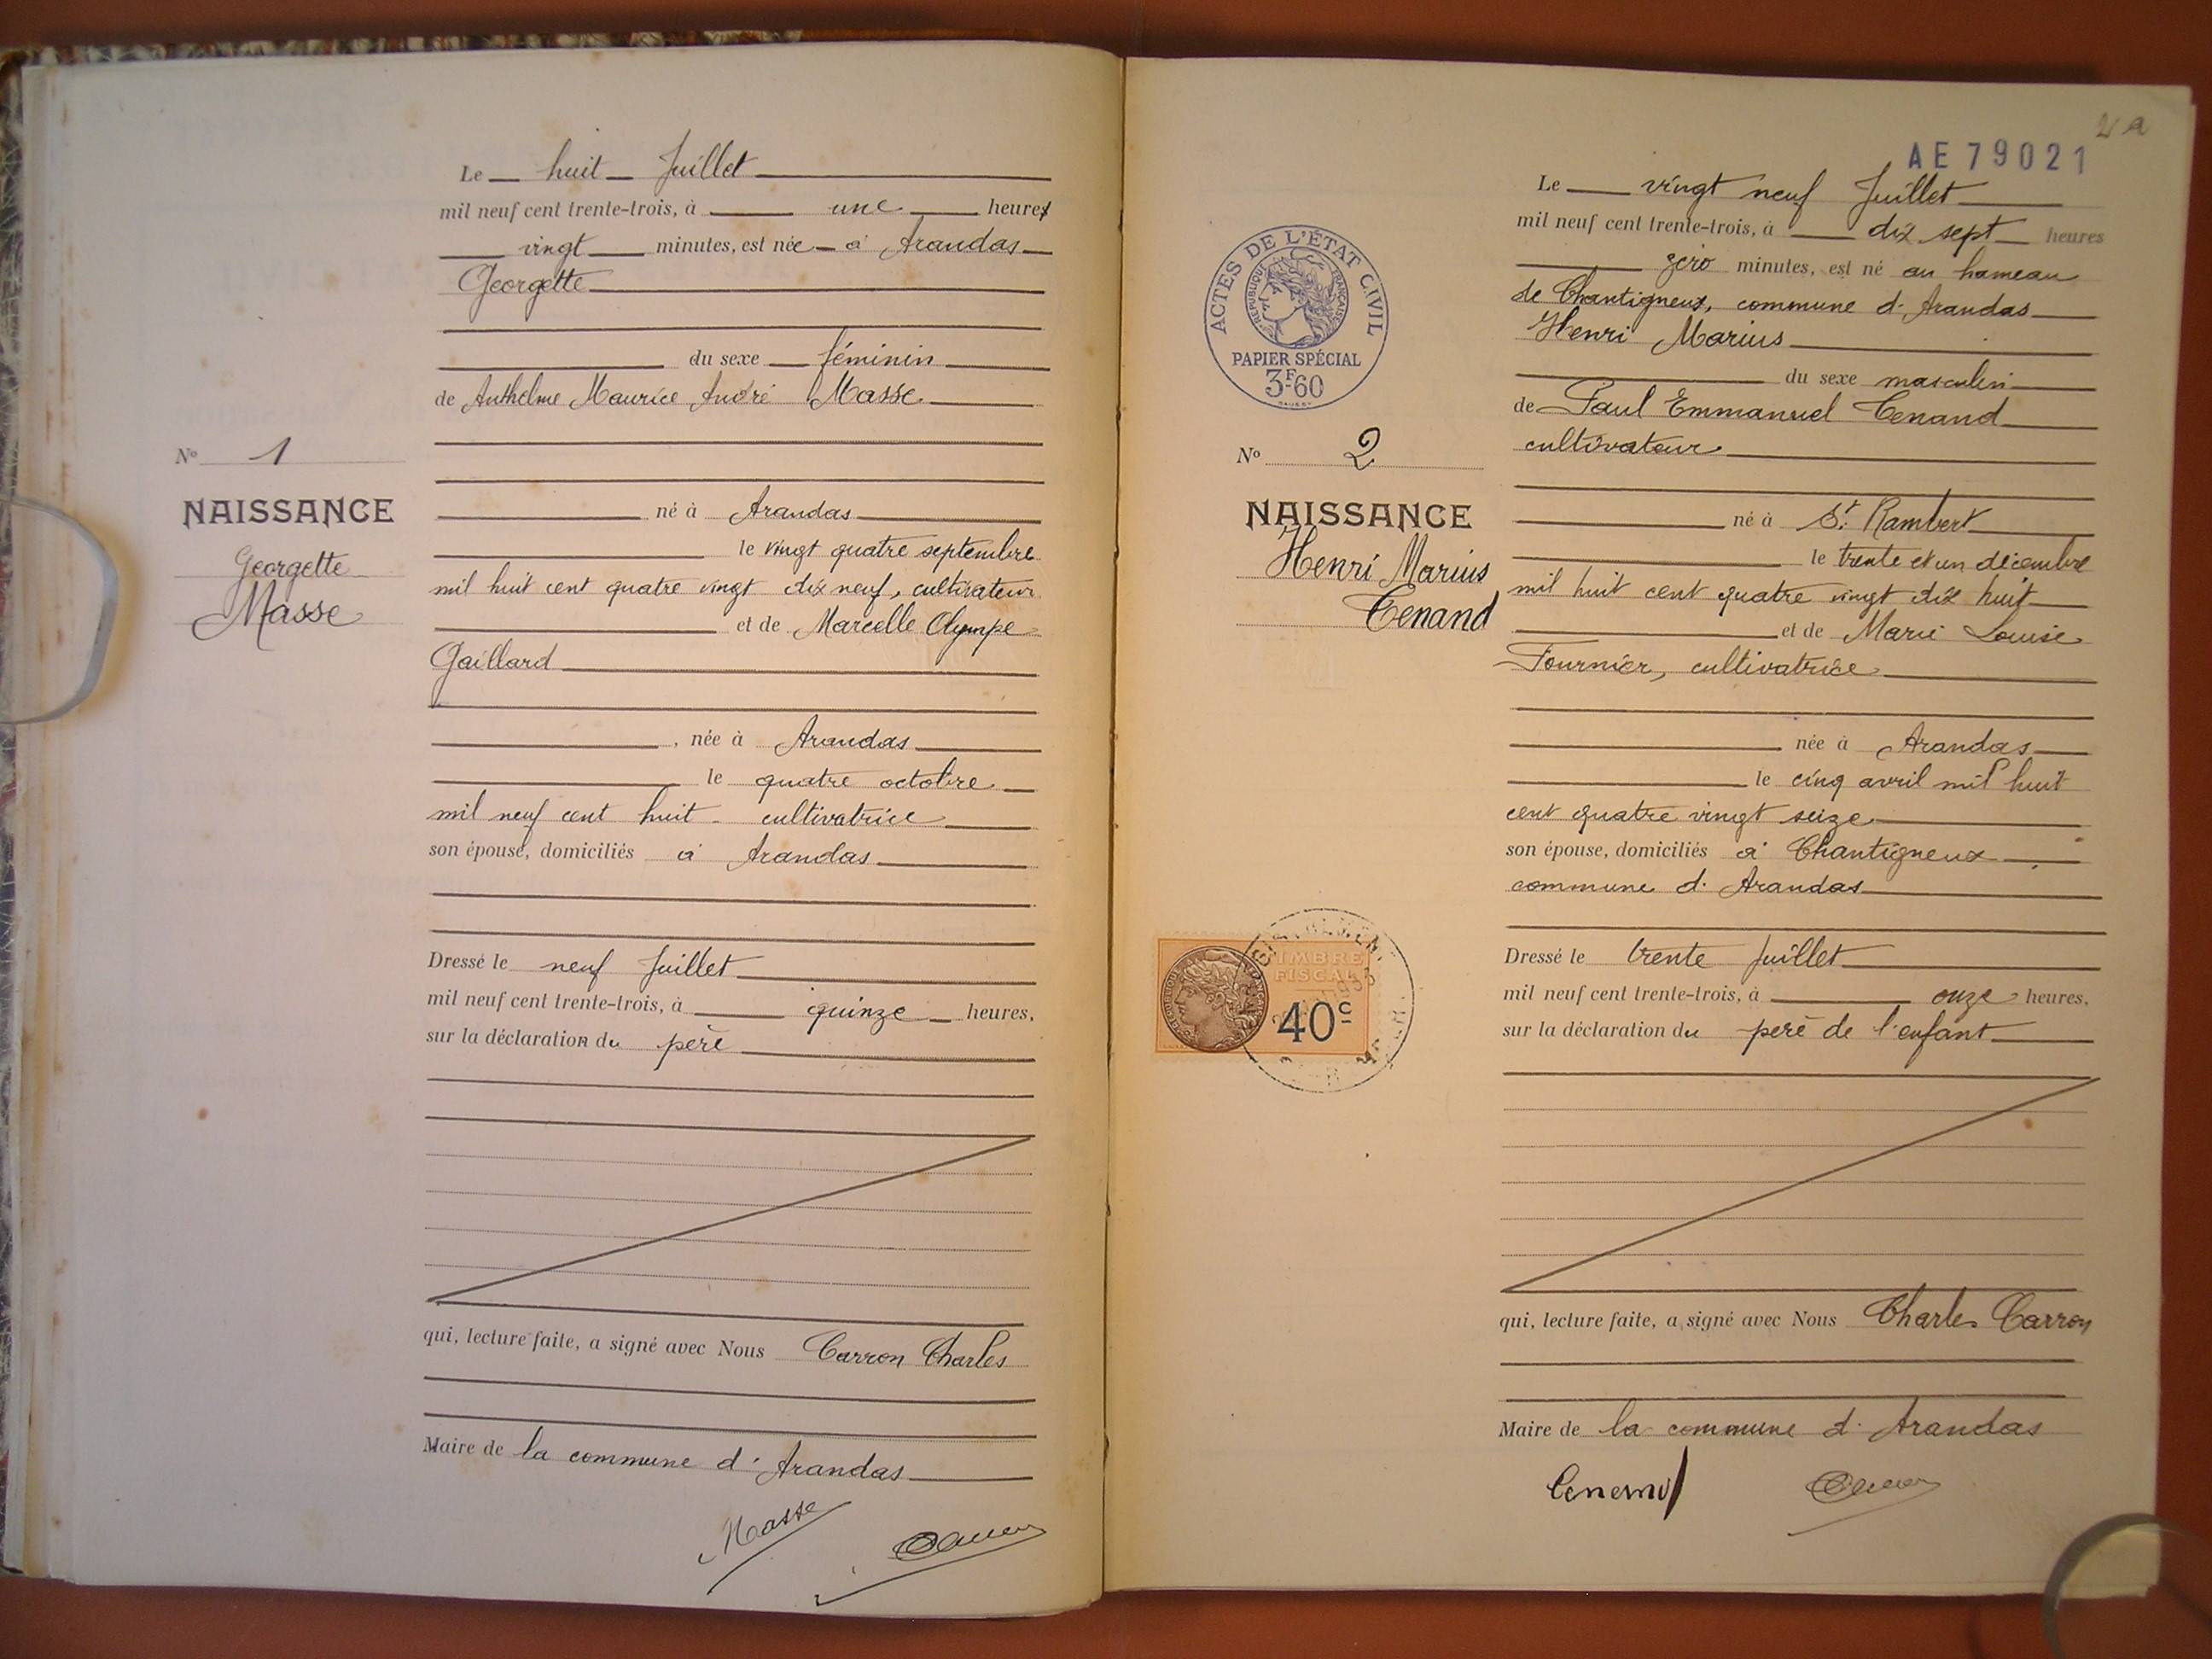 Le huit Juillet
mil neuf cent trente-trois, à une heure
vingt minutes, est née à Arandas
Georgette
du sexe féminin
de Anthelme Maurice André Masse
né à Arandas
le vingt quatre septembre
mil huit cent quatre vingt dix neuf, cultivateur
et de Marcelle Olympe
Gaillard
, née à Arandas
le quatre octobre
mil neuf cent huit - cultivatrice
son épouse, domiciliés à Arandas
Dressé le neuf Juillet
mil neuf cent trente-trois, à quinze heures,
sur la déclaration du père
qui, lecture faite, a signé avec Nous Carron Charles
Maire de la commune d'Arandas
Masse
No 1
NAISSANCE
Georgette
Masse
AE 79021
Le vingt neuf Juillet
mil neuf cent trente-trois, à dix sept heures
zéro minutes, est né au hameau
de Chantigneux, commune d'Arandas
Henri Marius
du sexe masculin
de Paul Emmanuel Tenand
cultivateur
né à St Rambert
le trente et un décembre
mil huit cent quatre vingt dix huit
et de Marie Louise
Fournier, cultivatrice
née à Arandas
le cinq avril mil huit
cent quatre vingt seize
son épouse, domiciliés à Chantigneux
commune d'Arandas
Dressé le trente Juillet
mil neuf cent trente-trois, à onze heures,
sur la déclaration du père de l'enfant
qui, lecture faite, a signé avec Nous Charles Carron
Maire de la commune d'Arandas
Tenand
ACTES DE L'ÉTAT CIVIL
RÉPUBLIQUE FRANÇAISE
PAPIER SPÉCIAL
3F60
No 2
NAISSANCE
Henri Marius
Tenand
TIMBRE
FISCAL
40c